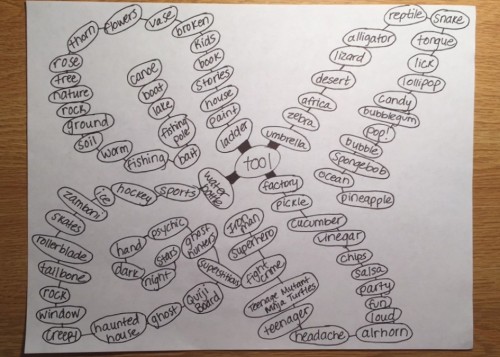 tool
ladder
paint
house
stories
book
kids
broken
vase
flowers
thorn
rose
tree
nature
rock
ground
soil
worm
fishing
bait
fishing
pole
lake
boat
canoe
umbrella
zebra
africa
desert
lizard
alligator
reptile
snake
tongue
lick
lollipop
candy
bubblegum
pop!
bubble
spongebob
ocean
pineapple
factory
pickle
cucumber
vinegar
chips
salsa
party
fun
loud
airhorn
headache
teenager
Teenage Mutant
Ninja Turtles
fight
crime
superhero
iron
man
water
bottle
sports
hockey
ice
zamboni
skates
rollerblade
tailbone
rock
window
creepy
haunted
house
ghost
Quiji
Board
ghost
hunters
stars
night
dark
hand
psychic